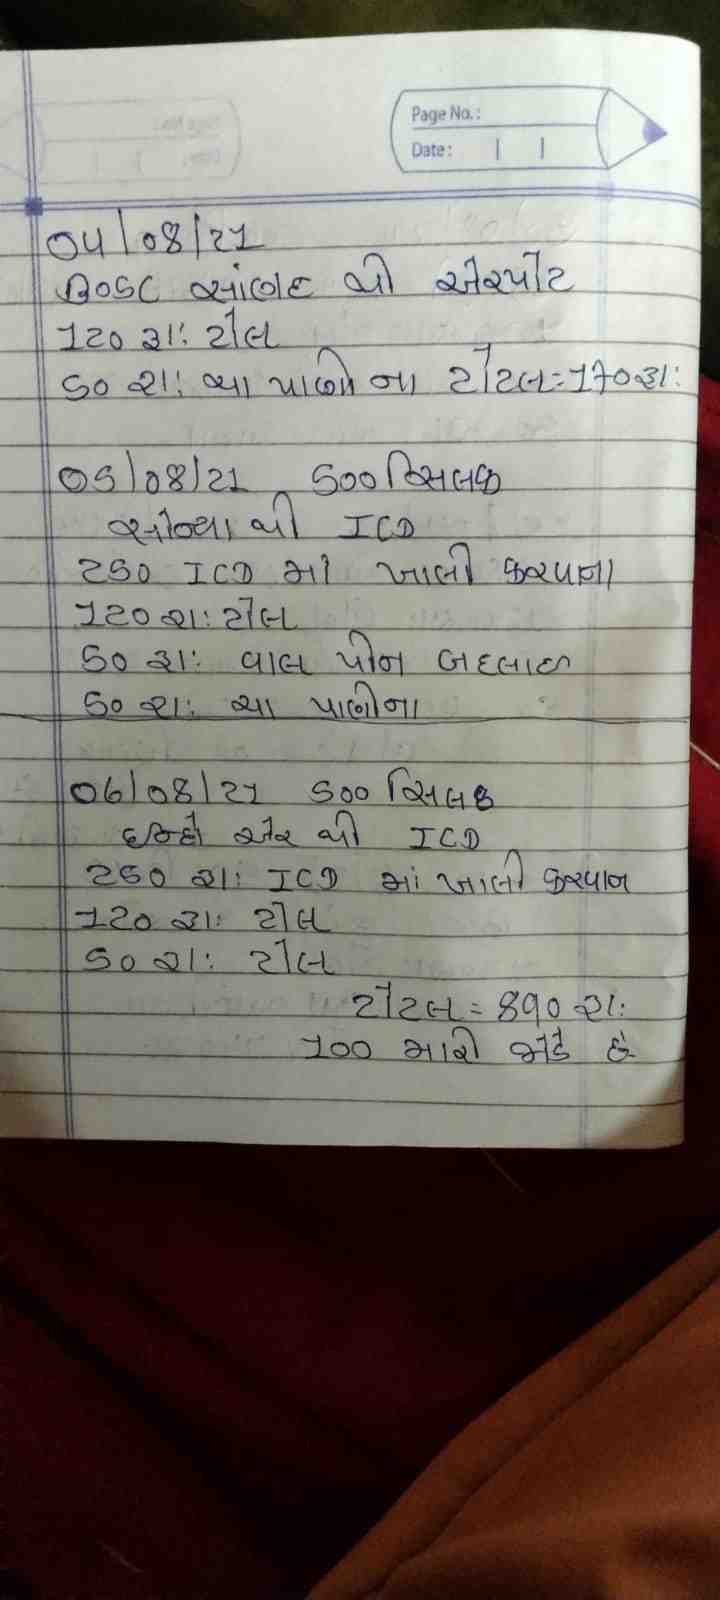 Page No.:
Date:
04/08/21
BOSC સાંણંદ થી એરપોટ
120 રૂા: ટોલ
50 રૂા: ચા પાણી ના ટોટલ=170રૂા:
05/08/21 500 સિલક
થી ICD
250 ICD માં ખાલી કરવાના
120 રૂા: ટોલ
50 રૂા: વાલ પીન બદલાઇ
50 રૂા: ચા પાણીના
06/08/21 500 સિલક
એર થી ICD
250 રૂા: ICD માં ખાલી કરવાન
120 રૂા: ટોલ
50 રૂા: ટોલ
ટોટલ = 890 રૂા:
100 મારી જોડે છે